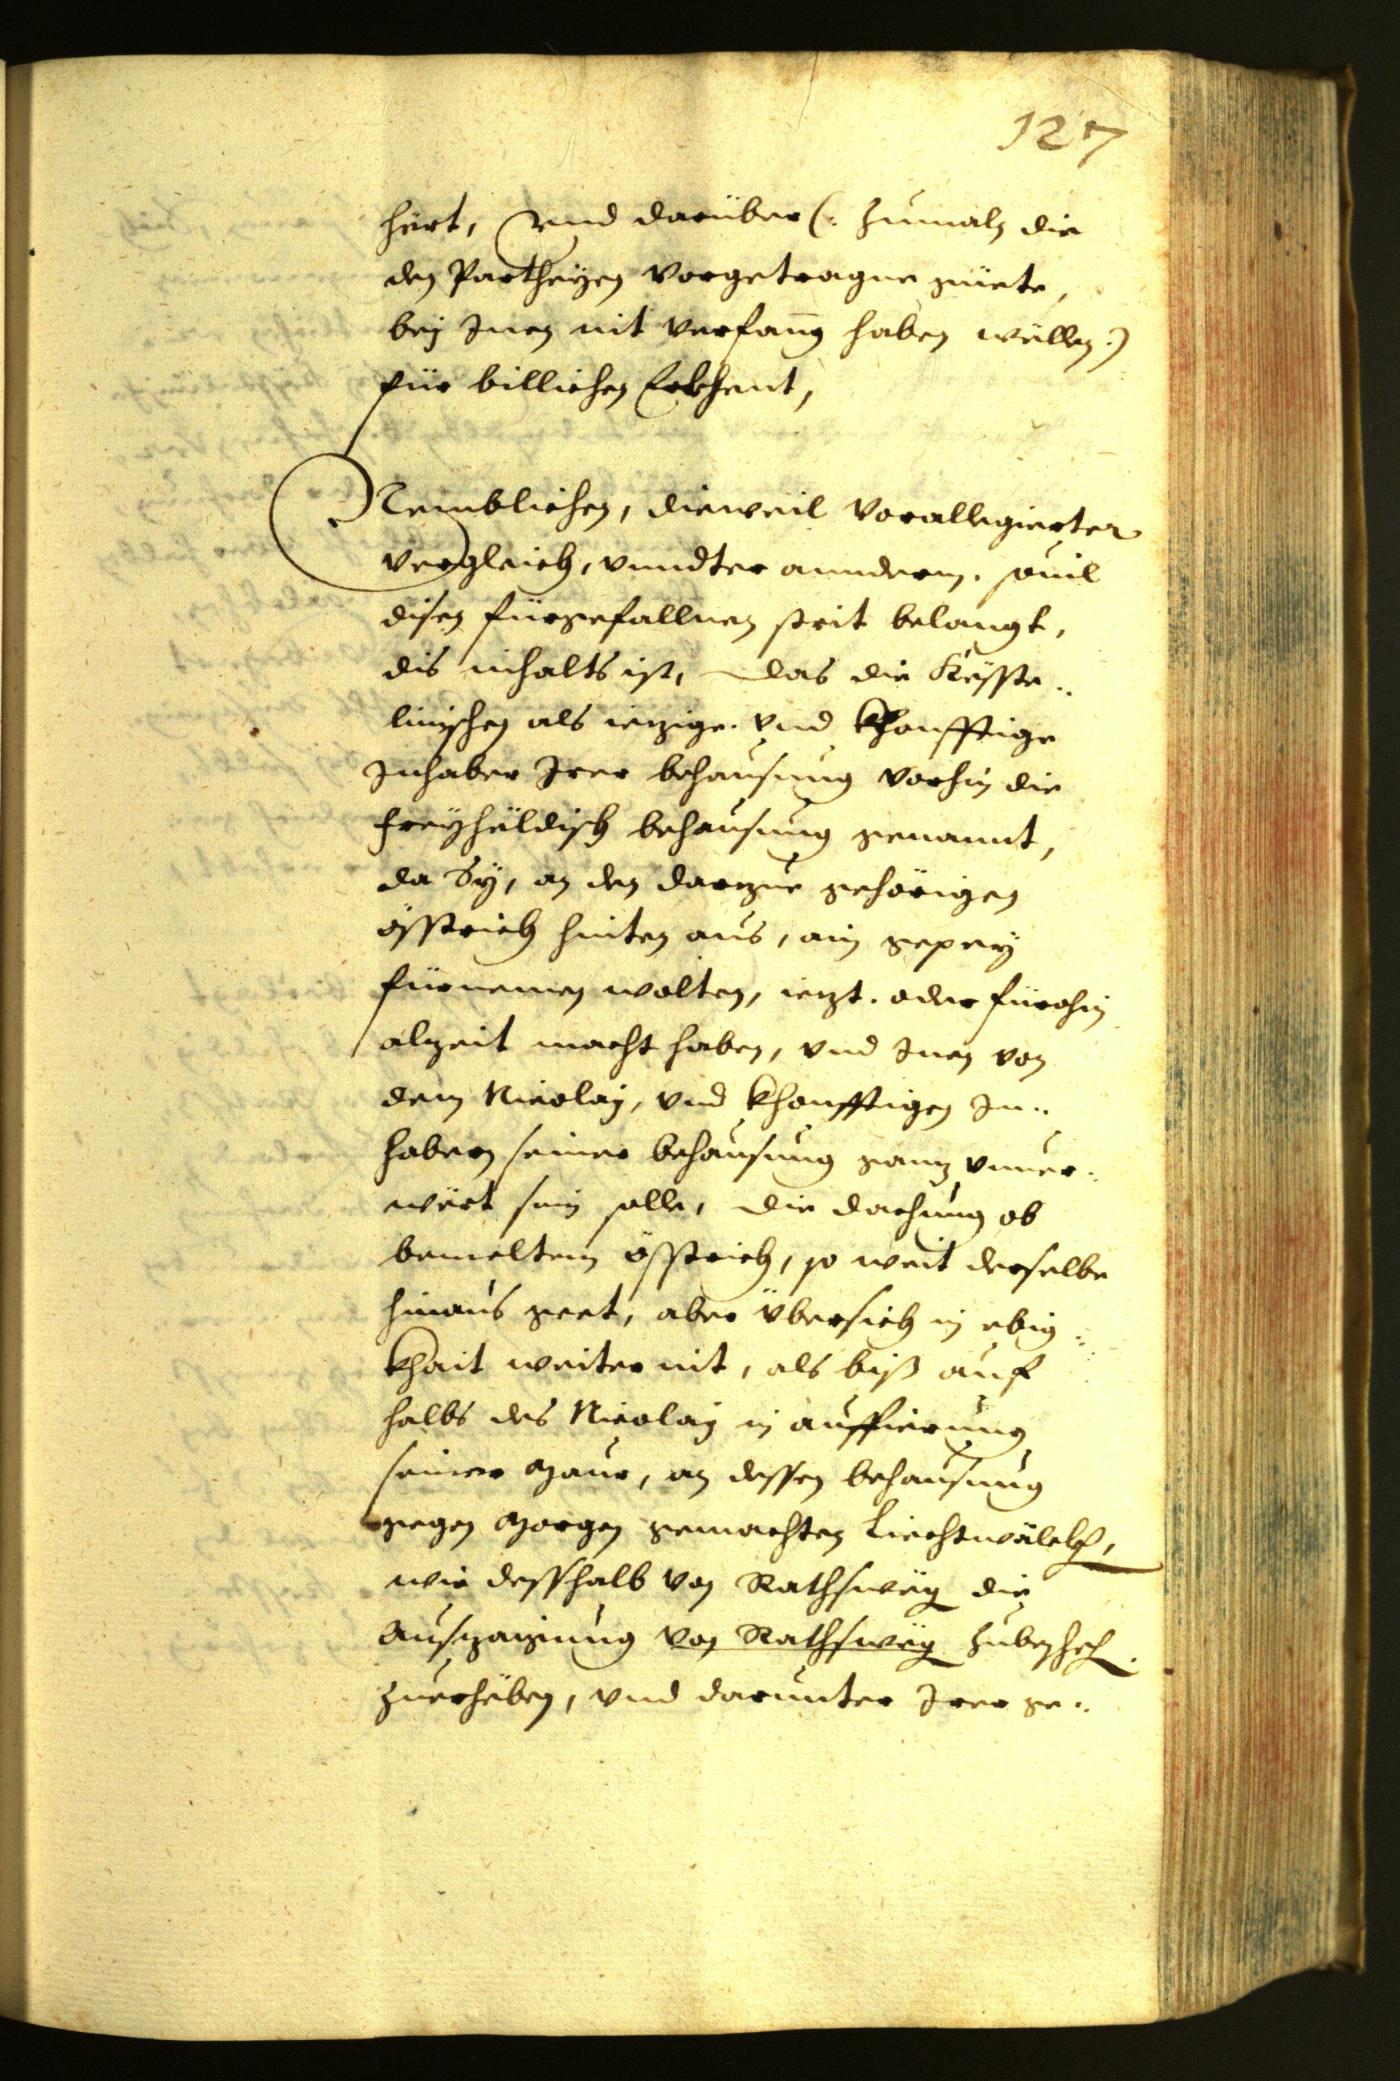 127
hört, Vnd darüber (: Zumaln die
den Partheyen vorgetragne güete,
bey Inen nit verfang haben wöllen :)
für billichen Erkhent,
Nemblichen, dieweil vorallegierter
vergleich, vnndter annderm, souil
disen fürgefallnen strit belangt,
dis inhalts ist, das die Keysste..
linischen als ietzige. vnd khonfftige
Inhaber Irer behausung vorhin die
Freyheldisch behausung genannt,
da Sy, an den darzue gehörigen
össtrich hinten aus, ain gepey
fürnemen wolten, ietzt. oder fürohin
alzeit macht haben, vnd Inen von
dem Nicolaj, vnd khonfftigen In..
habern seiner behausung gantz vnuer..
wört sein solle, die dachung ob
bemeltem össtrich, so weit derselbe
hinaus geet, aber übersich in ebig..
khait weiter nit, als biß auf
halbs des Nicolaj in auffierung
seiner Maur, an dessen behausung
gegen Morgen gemachten Liechtwälelen,
wie dessthalb von Rathsweg die
ausszaigung von Rathsweg
zuerheben, vnd darunter Irer ge..